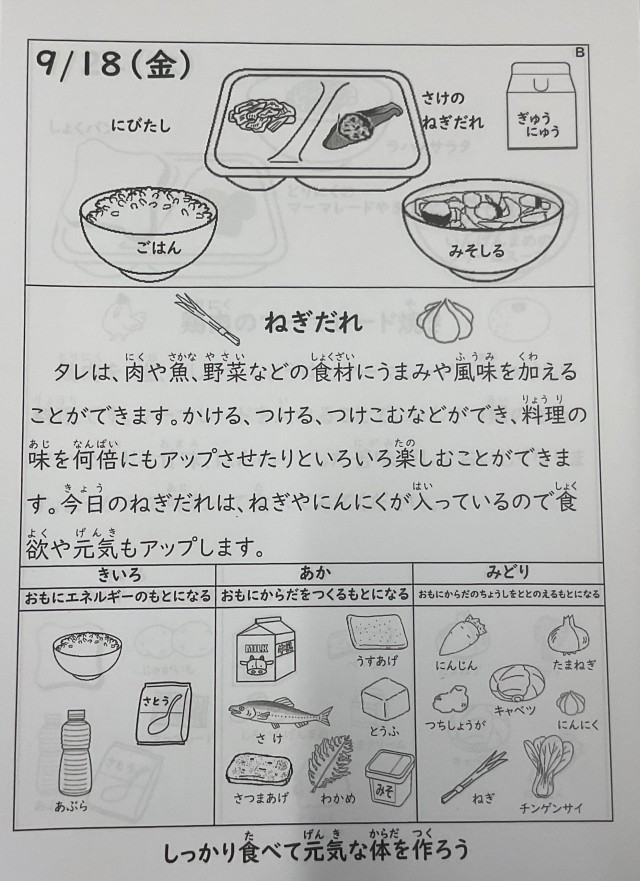 9/18(金)
B
にびたし
さけの
ねぎだれ
ぎゅう
にゅう
ごはん
みそしる
ねぎだれ
タレは、肉や魚、野菜などの食材にうまみや風味を加える
ことができます。かける、つける、つけこむなどができ、料理の
味を何倍にもアップさせたりといろいろ楽しむことができま
す。今日のねぎだれは、ねぎやにんにくが入っているので食
欲や元気もアップします。
きいろ
あか
みどり
おもにエネルギーのもとになる
おもにからだをつくるもとになる
おもにからだのちょうしをととのえるもとになる
さとう
あぶら
MILK
うすあげ
さけ
とうふ
さつまあげ
わかめ
みそ
にんじん
たまねぎ
キャベツ
つちしょうが
にんにく
ねぎ
チンゲンサイ
しっかり食べて元気な体を作ろう